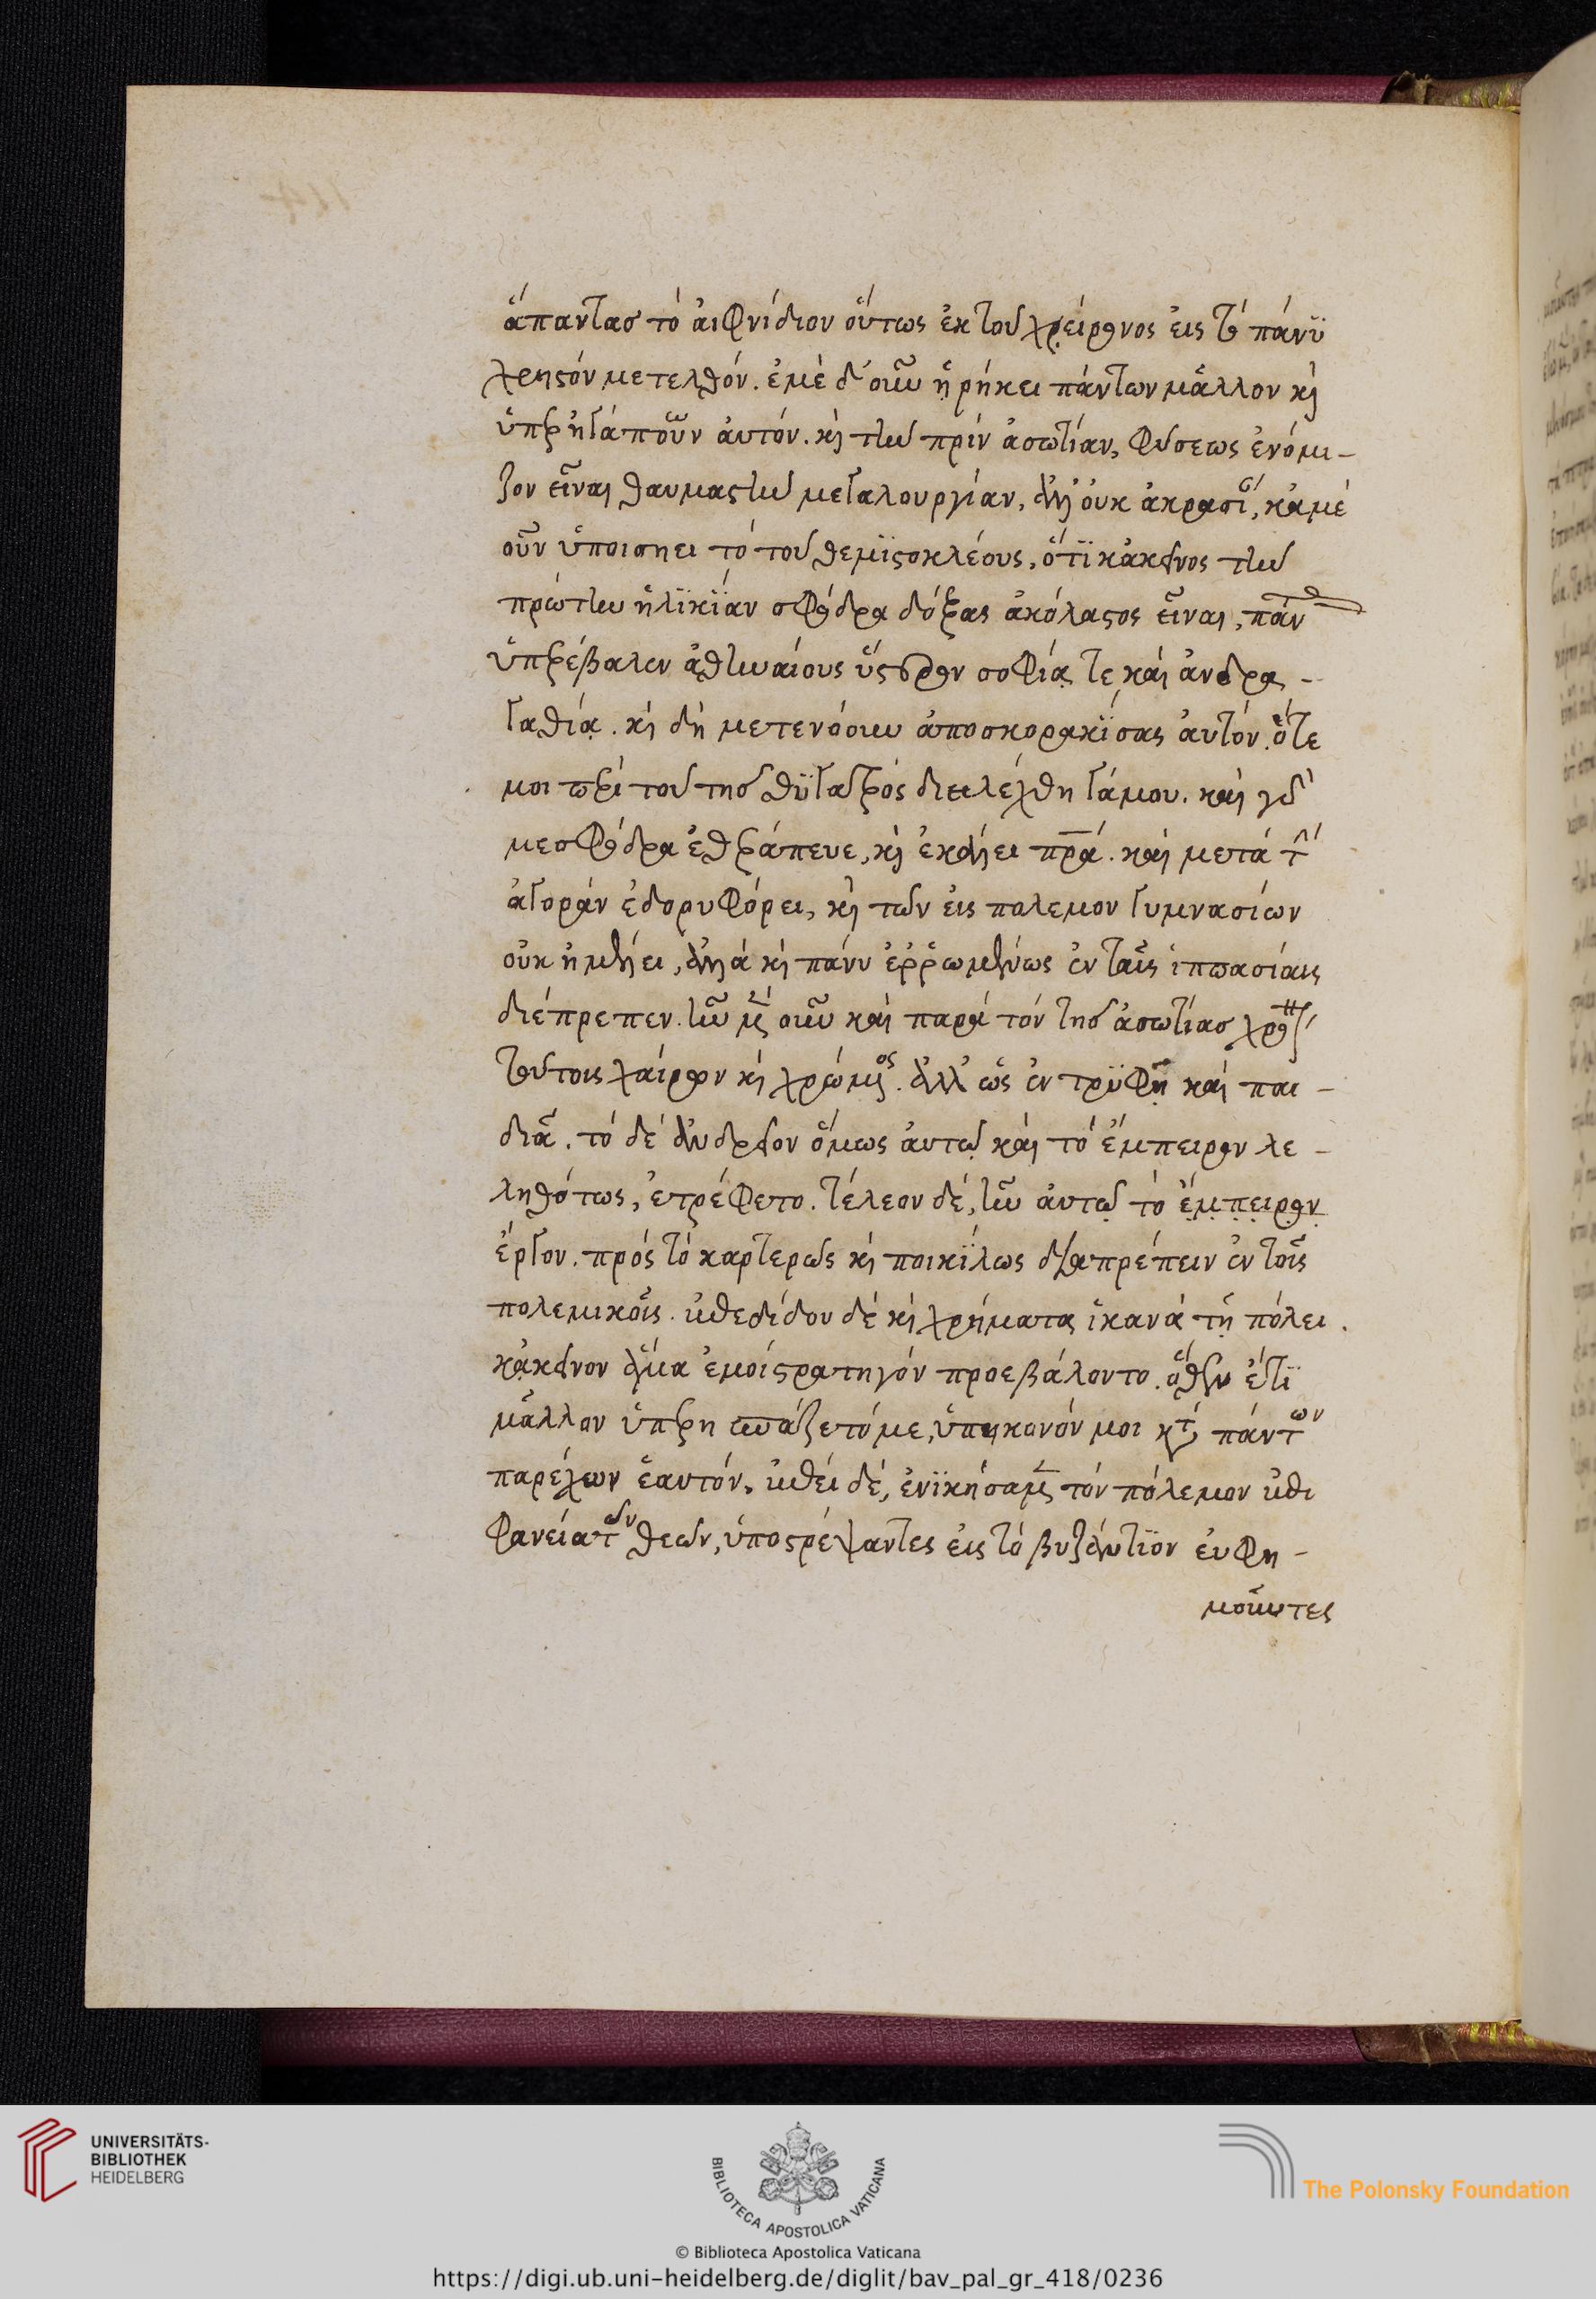 ἅπαντας τὸ αἰφνίδιον οὕτως ἐκ τοῦ χείρονος εἰς τὸ πάνϋ
χρηστὸν μετελθόν. ἐμὲ δ' οὖν ᾑρήκει πάντων μᾶλλον κὶ
ὑπερηγάπουν αὐτόν. κὶ τὴν πρὶν ἀσωτίαν, φύσεως ἐνόμι-
ζον εἶναι θαυμαστὴν μεγαλουργίαν, ἀλλ' οὐκ ἀκρασί, κἀμὲ
οὖν ὑποισηει τὸ τοῦ θεμϊστοκλέους, ὅτϊ κἀκεῖνος τὴν
πρώτην ἡλϊκϊαν σφόδρα δόξας ἀκόλαστος εἶναι, πάντας
ὑπερέβαλεν ἀθηναίους ὕστερον σοφίᾳ τε καὶ ἀνδρα-
γαθίᾳ. κὶ δὴ μετενόουν ἀποσκορακϊσας αὐτόν. ὅτε
μοι περὶ τοῦ τῆς θϋγατρὸς διελέχθη γάμου. καὶ γὰρ
με σφόδρα ἐθεράπευε, κὶ ἐκάλει πρα. καὶ μετὰ τὴν
ἀγορὰν ἐδορυφόρει, κὶ τῶν εἰς πολεμον γυμνασίων
οὐκ ἠμέλει, ἀλλὰ κὶ πάνυ ἐρρωμένως ἐν ταῖς ἱππασίαις
διέπρεπεν. ἦν μὲν οὖν καὶ παρὰ τὸν τῆς ἀσωτίας χρόνον
τούτοις χαίρων κὶ χρώμενος. ἀλλ' ὡς ἐν τρϋφῇ καὶ παι-
διᾷ. τὸ δὲ ἀνδρεῖον ὅμως αὐτῷ καὶ τὸ ἔμπειρον λε-
ληθότως, ἐτρέφετο. τέλεον δὲ, ἦν αὐτῷ τὸ ἔμπειρον
ἔργον. πρὸς τὸ καρτερῶς κὶ ποικϊλως διαπρέπειν ἐν τοῖς
πολεμικοῖς. ἐπεδίδου δὲ κὶ χρήματα ἱκανὰ τῇ πόλει.
κἀκεῖνον ἅμα ἐμοὶ στρατηγὸν προεβάλοντο. ὅθεν ἔτϊ
μᾶλλον ὑπερησπάζετό με, ὑπήκοον μοι κατὰ πάντων
παρέχων ἑαυτόν. ἐπεὶ δὲ, ἐνϊκήσαμεν τὸν πόλεμον ἐπι
φανείᾳ τῶν θεῶν, ὑποστρέψαντες εἰς τὸ βυζάντϊον εὐφη-
μοῦντες
UNIVERSITÄTS-
BIBLIOTHEK
HEIDELBERG
BIBLIOTECA APOSTOLICA VATICANA
The Polonsky Foundation
© Biblioteca Apostolica Vaticana
https://digi.ub.uni-heidelberg.de/diglit/bav_pal_gr_418/0236